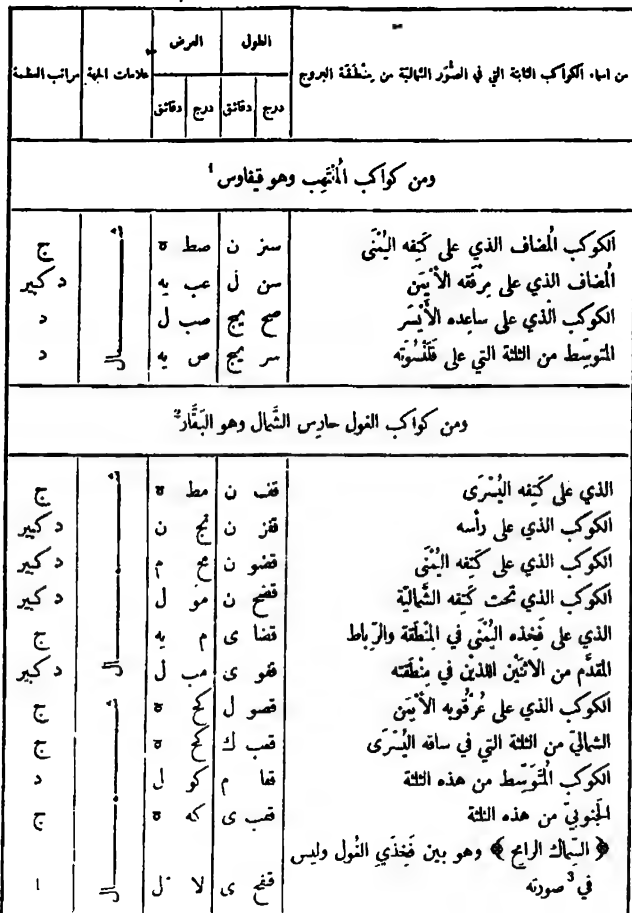 من اسماء الكواكب الثابتة التي في الصُّوَر الشماليّة من مِنْطَقَة البروج | الطول | العرض | علامات الجهة | مراتب العظمة
درج | دقائق | درج | دقائق
ومن كواكب المُلْتَهِب وهو قيفاوس ¹
الكوكب المُضاف الذي على كَتِفه اليُمْنَى | سز | ن | صط | ه | شـــمـــال | ج
المُضاف الذي على مِرْفَقه الأَيْمَن | سن | ل | عب | يه | د كبير
الكوكب الّذي على ساعِده الأَيْسَر | صح | يج | صب | ل | د
المتوسِّط من الثلثة التي على قَلَنْسُوَته | سر | يج | ص | يه | د
ومن كواكب الغول حارِس الشَّمال وهو البَقَّار ²
الذي على كَتِفه اليُسْرَى | قفب | ن | مط | ه | شـــمـــال | ج
الكوكب الذي على رأسه | قفز | ن | نج | ن | د كبير
الكوكب الذي على كَتِفه اليُمْنَى | قضو | ن | مح | م | د كبير
الكوكب الذي تحت كَتِفه الشَّماليّة | قضح | ن | مو | ل | د كبير
الذي على فَخِذه اليُمْنَى في المِنْطَقة والرِّباط | قضا | ى | م | يه | ج
المقدَّم من الاثنَيْن اللذَيْن في مِنْطَقته | قفو | ى | مب | ل | د كبير
الكوكب الذي على عُرْقُوبه الأَيْمَن | قصو | ل | كح | ه | شـــمـــال | ج
الشماليّ من الثلثة التي في ساقه اليُسْرَى | قفب | ك | كح | ه | ج
الكوكب المُتَوَسِّط من هذه الثلثة | قفا | م | كو | ل | د
الجَنوبيّ من هذه الثلثة | قفب | ى | كه | ه | ج
﴿ السِّماك الرامِح ﴾ وهو بين فَخِذَيِ الغُول وليس
في ³ صورته | قفح | ى | لا | ل | ا